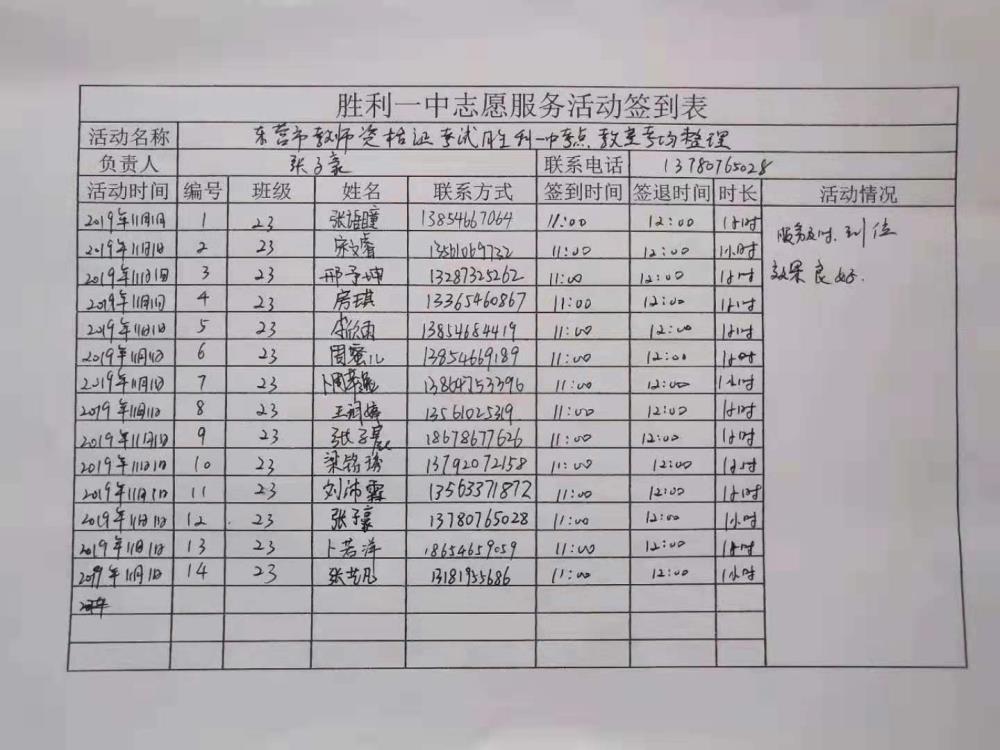 胜利一中志愿服务活动签到表
活动名称 东营市教师资格证考试胜利一中考点教室考场整理
负责人 张子豪 联系电话 13780765028
活动时间 编号 班级 姓名 联系方式 签到时间 签退时间 时长 活动情况
2019年11月1日 1 23 张 13854667064 11:00 12:00 1小时 服务及时、到位
2019年11月1日 2 23 宋文睿 13561069732 11:00 12:00 1小时
2019年11月1日 3 23 邢予坤 13287325262 11:00 12:00 1小时 效果良好.
2019年11月1日 4 23 房琪 13365460867 11:00 12:00 1小时
2019年11月1日 5 23 欣雨 13854684419 11:00 12:00 1小时
2019年11月1日 6 23 周蜜儿 13854669189 11:00 12:00 1小时
2019年11月1日 7 23 13864753396 11:00 12:00 1小时
2019年11月1日 8 23 王婷 13561025319 11:00 12:00 1小时
2019年11月1日 9 23 张子晨 18678677626 11:00 12:00 1小时
2019年11月1日 10 23 梁铭琇 13792072158 11:00 12:00 1小时
2019年11月1日 11 23 刘沛霖 13563371872 11:00 12:00 1小时
2019年11月1日 12 23 张子豪 13780765028 11:00 12:00 1小时
2019年11月1日 13 23 卜若洋 18654659059 11:00 12:00 1小时
2019年11月1日 14 23 张艺凡 13181955686 11:00 12:00 1小时